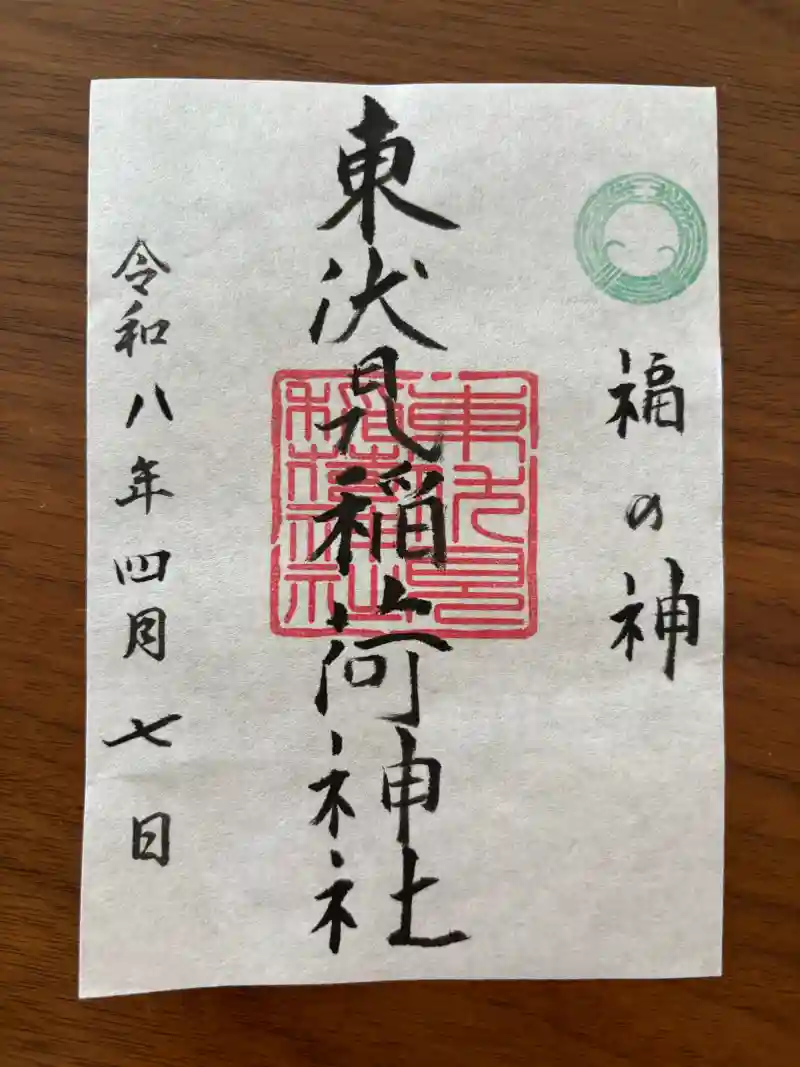 福の神
東伏見稲荷神社
東伏見稲荷神社
令和八年四月七日